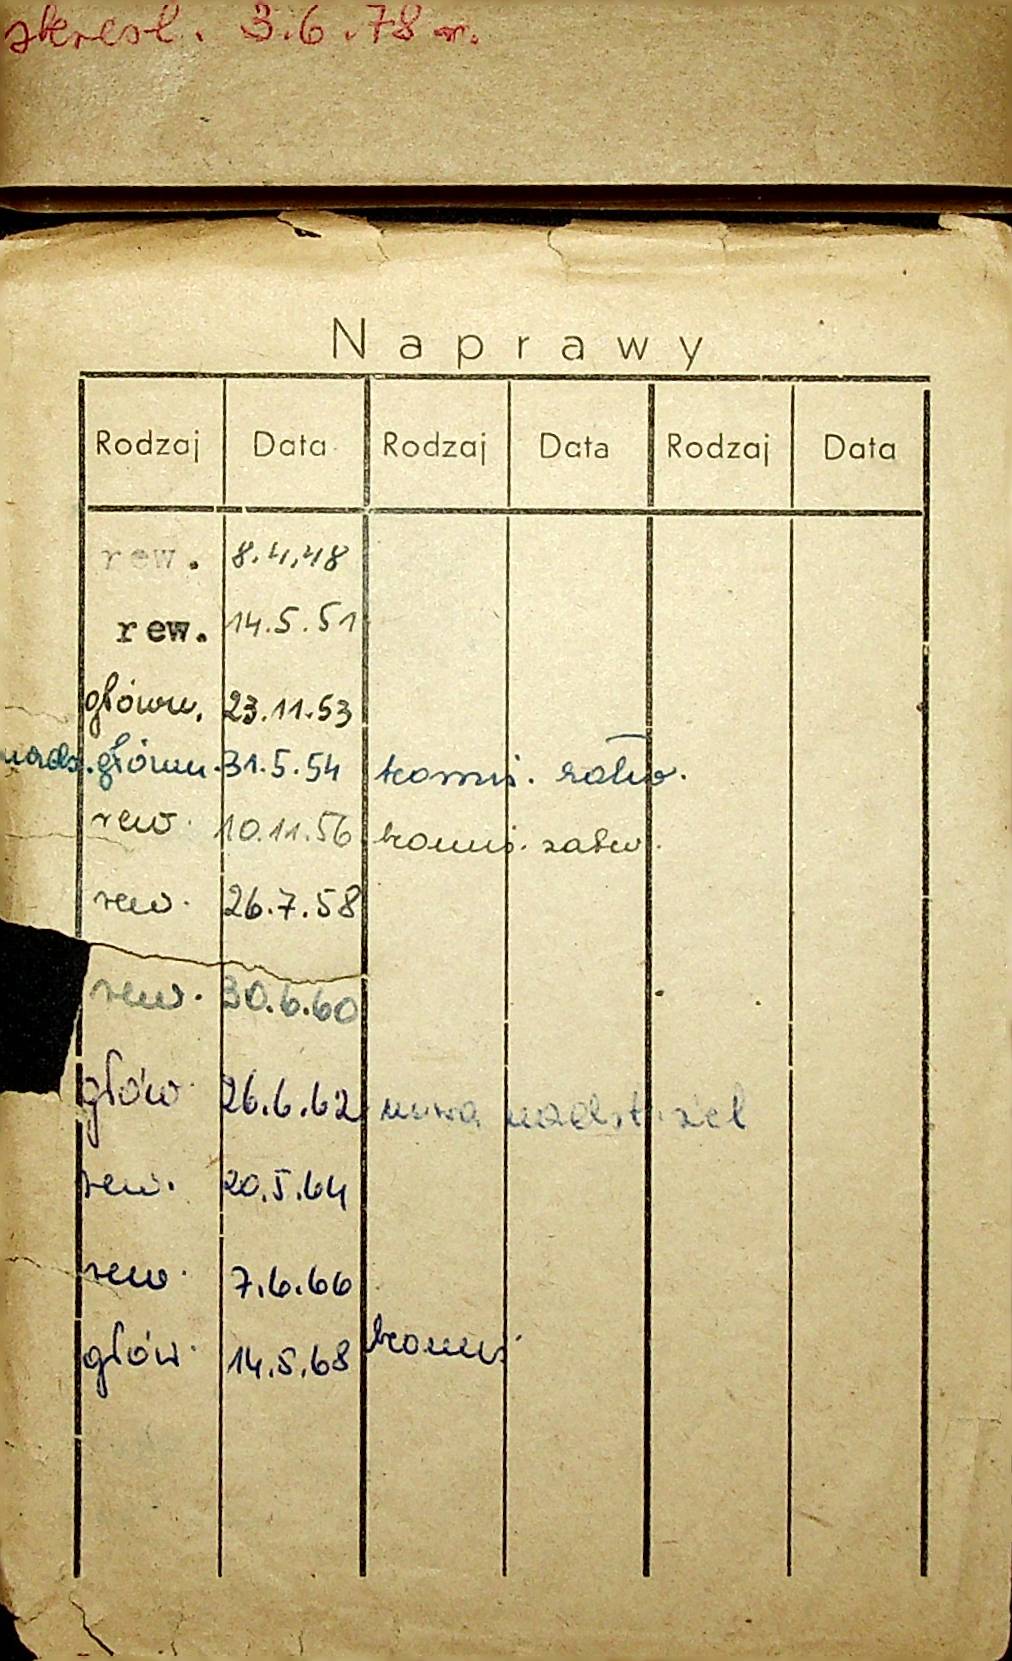 skreśl. 3.6.78 r.
Naprawy
Rodzaj Data Rodzaj Data Rodzaj Data
rew. 8.4.48
rew. 14.5.51
główn. 23.11.53
nadz. główn. 31.5.54 komis. zatw.
rew. 10.11.56 komis. zatw.
rew. 26.7.58
rew. 30.6.60
głów. 26.6.62 nowa
rew. 20.5.64
rew. 7.6.66
głów. 14.5.68 komis.